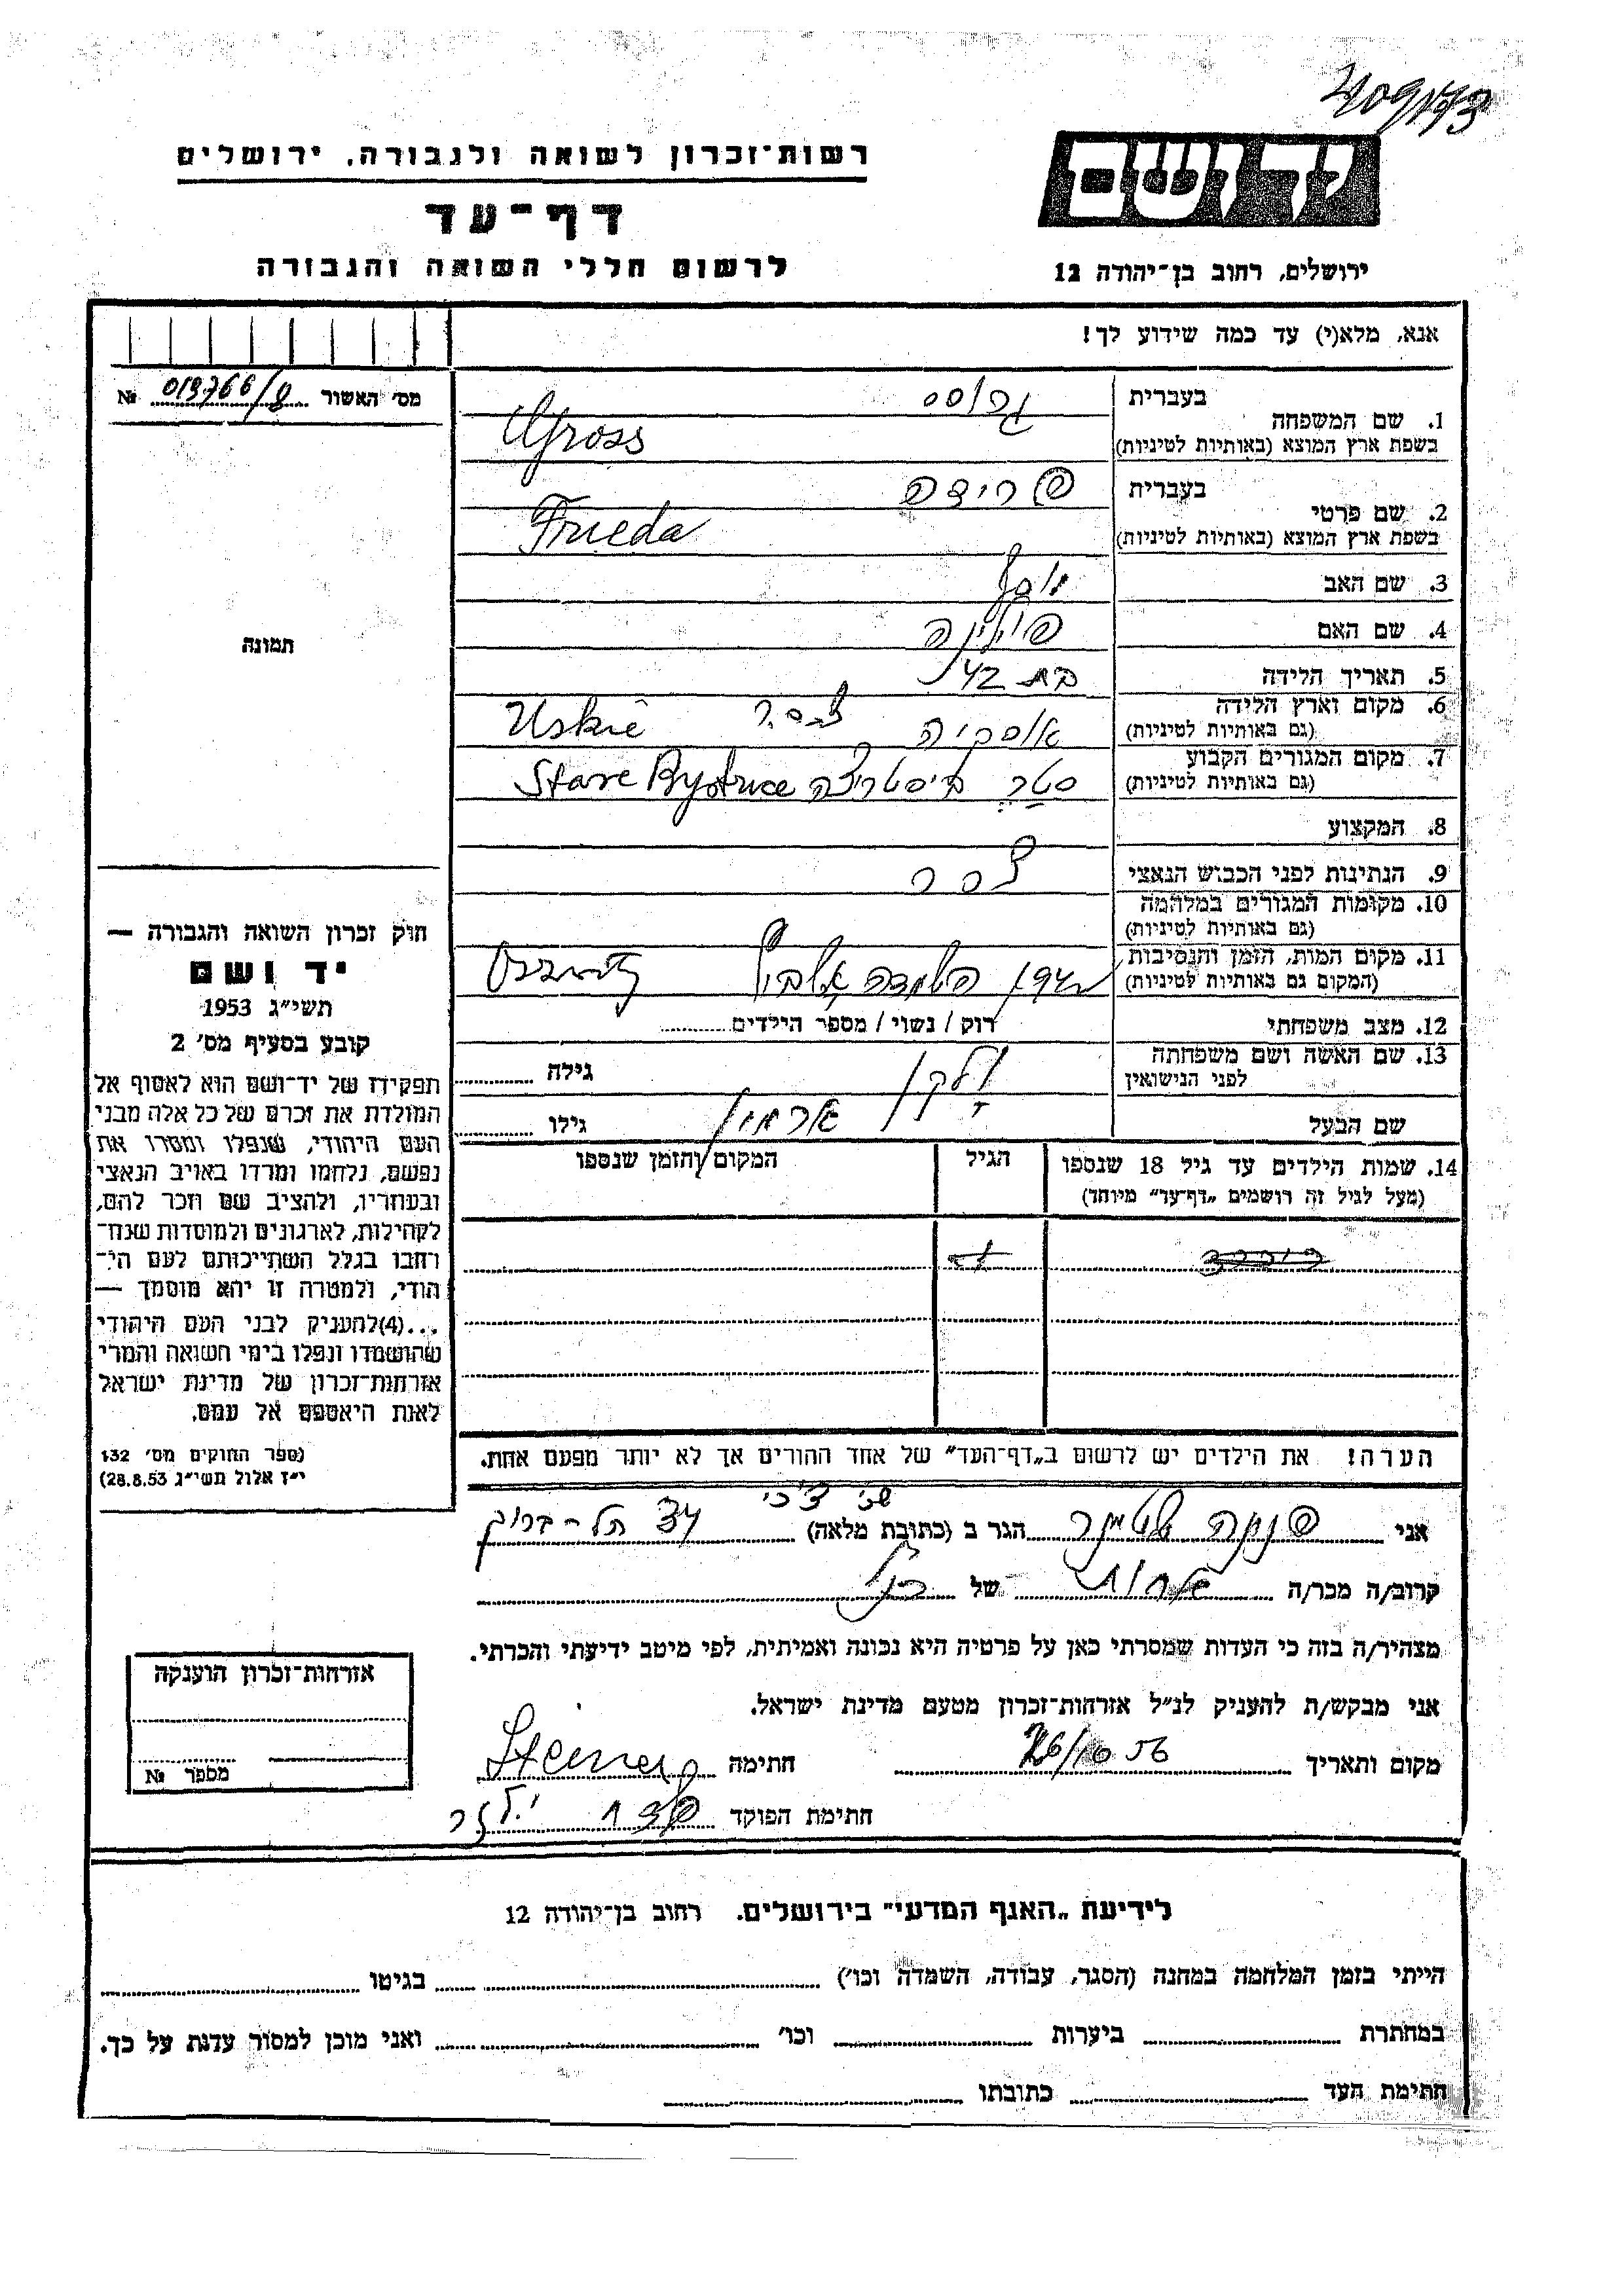 רשות־זכרון לשואה ולגבורה, ירושלים
יד ושם
דף־עד
לרשום חללי השואה והגבורה
ירושלים, רחוב בן־יהודה 12
אנא, מלא(י) עד כמה שידוע לך!
מס׳ האשור 013766/8 №
1. שם המשפחה
בעברית גרוס
בשפת ארץ המוצא (באותיות לטיניות) Gross
2. שם פרטי
בעברית פרידה
בשפת ארץ המוצא (באותיות לטיניות) Frieda
3. שם האב יוסף
4. שם האם פולינה
5. תאריך הלידה בת 42
6. מקום וארץ הלידה
(גם באותיות לטיניות) Uskie
7. מקום המגורים הקבוע
(גם באותיות לטיניות) סטרה ביסטריצה Stare Bystrice
8. המקצוע
9. הנתינות לפני הכבוש הנאצי צ׳כר
10. מקומות המגורים במלחמה
(גם באותיות לטיניות)
11. מקום המות, הזמן והנסיבות
(המקום גם באותיות לטיניות)
12. מצב משפחתי רוק / נשוי / מספר הילדים
13. שם האשה ושם משפחתה
לפני הנישואין
גילה
שם הבעל גילו
14. שמות הילדים עד גיל 18 שנספו
(מעל לגיל זה רושמים „דף־עד״ מיוחד)
הגיל
המקום והזמן שנספו
הערה! את הילדים יש לרשום ב„דף־העד״ של אחד ההורים אך לא יותר מפעם אחת.
תמונה
חוק זכרון השואה והגבורה —
יד ושם
תשי״ג 1953
קובע בסעיף מס׳ 2
תפקידו של יד־ושם הוא לאסוף אל
המולדת את זכרם של כל אלה מבני
העם היהודי, שנפלו ומסרו את
נפשם, נלחמו ומרדו באויב הנאצי
ובעוזריו, ולהציב שם וזכר להם,
לקהילות, לארגונים ולמוסדות שנח־
רבו בגלל השתייכותם לעם הי־
הודי, ולמטרה זו יהא מוסמך —
...(4) להעניק לבני העם היהודי
שהושמדו ונפלו בימי השואה והמרי
אזרחות־זכרון של מדינת ישראל
לאות היאספם אל עמם.
(ספר החוקים מס׳ 132
י״ז אלול תשי״ג 28.8.53)
אני פנינה שטינר הגר ב (כתובת מלאה)
קרוב/ה מכר/ה אחות של הנ״ל
מצהיר/ה בזה כי העדות שמסרתי כאן על פרטיה היא נכונה ואמיתית, לפי מיטב ידיעתי והכרתי.
אני מבקש/ת להעניק לנ״ל אזרחות־זכרון מטעם מדינת ישראל.
מקום ותאריך חתימה Steiner
חתימת הפוקד
אזרחות־זכרון הוענקה
מספר №
לידיעת „האגף המדעי״ בירושלים. רחוב בן־יהודה 12
הייתי בזמן המלחמה במחנה (הסגר, עבודה, השמדה וכו׳) בגיטו
במחתרת ביערות וכו׳ ואני מוכן למסור עדות על כך.
חתימת העד כתובתו